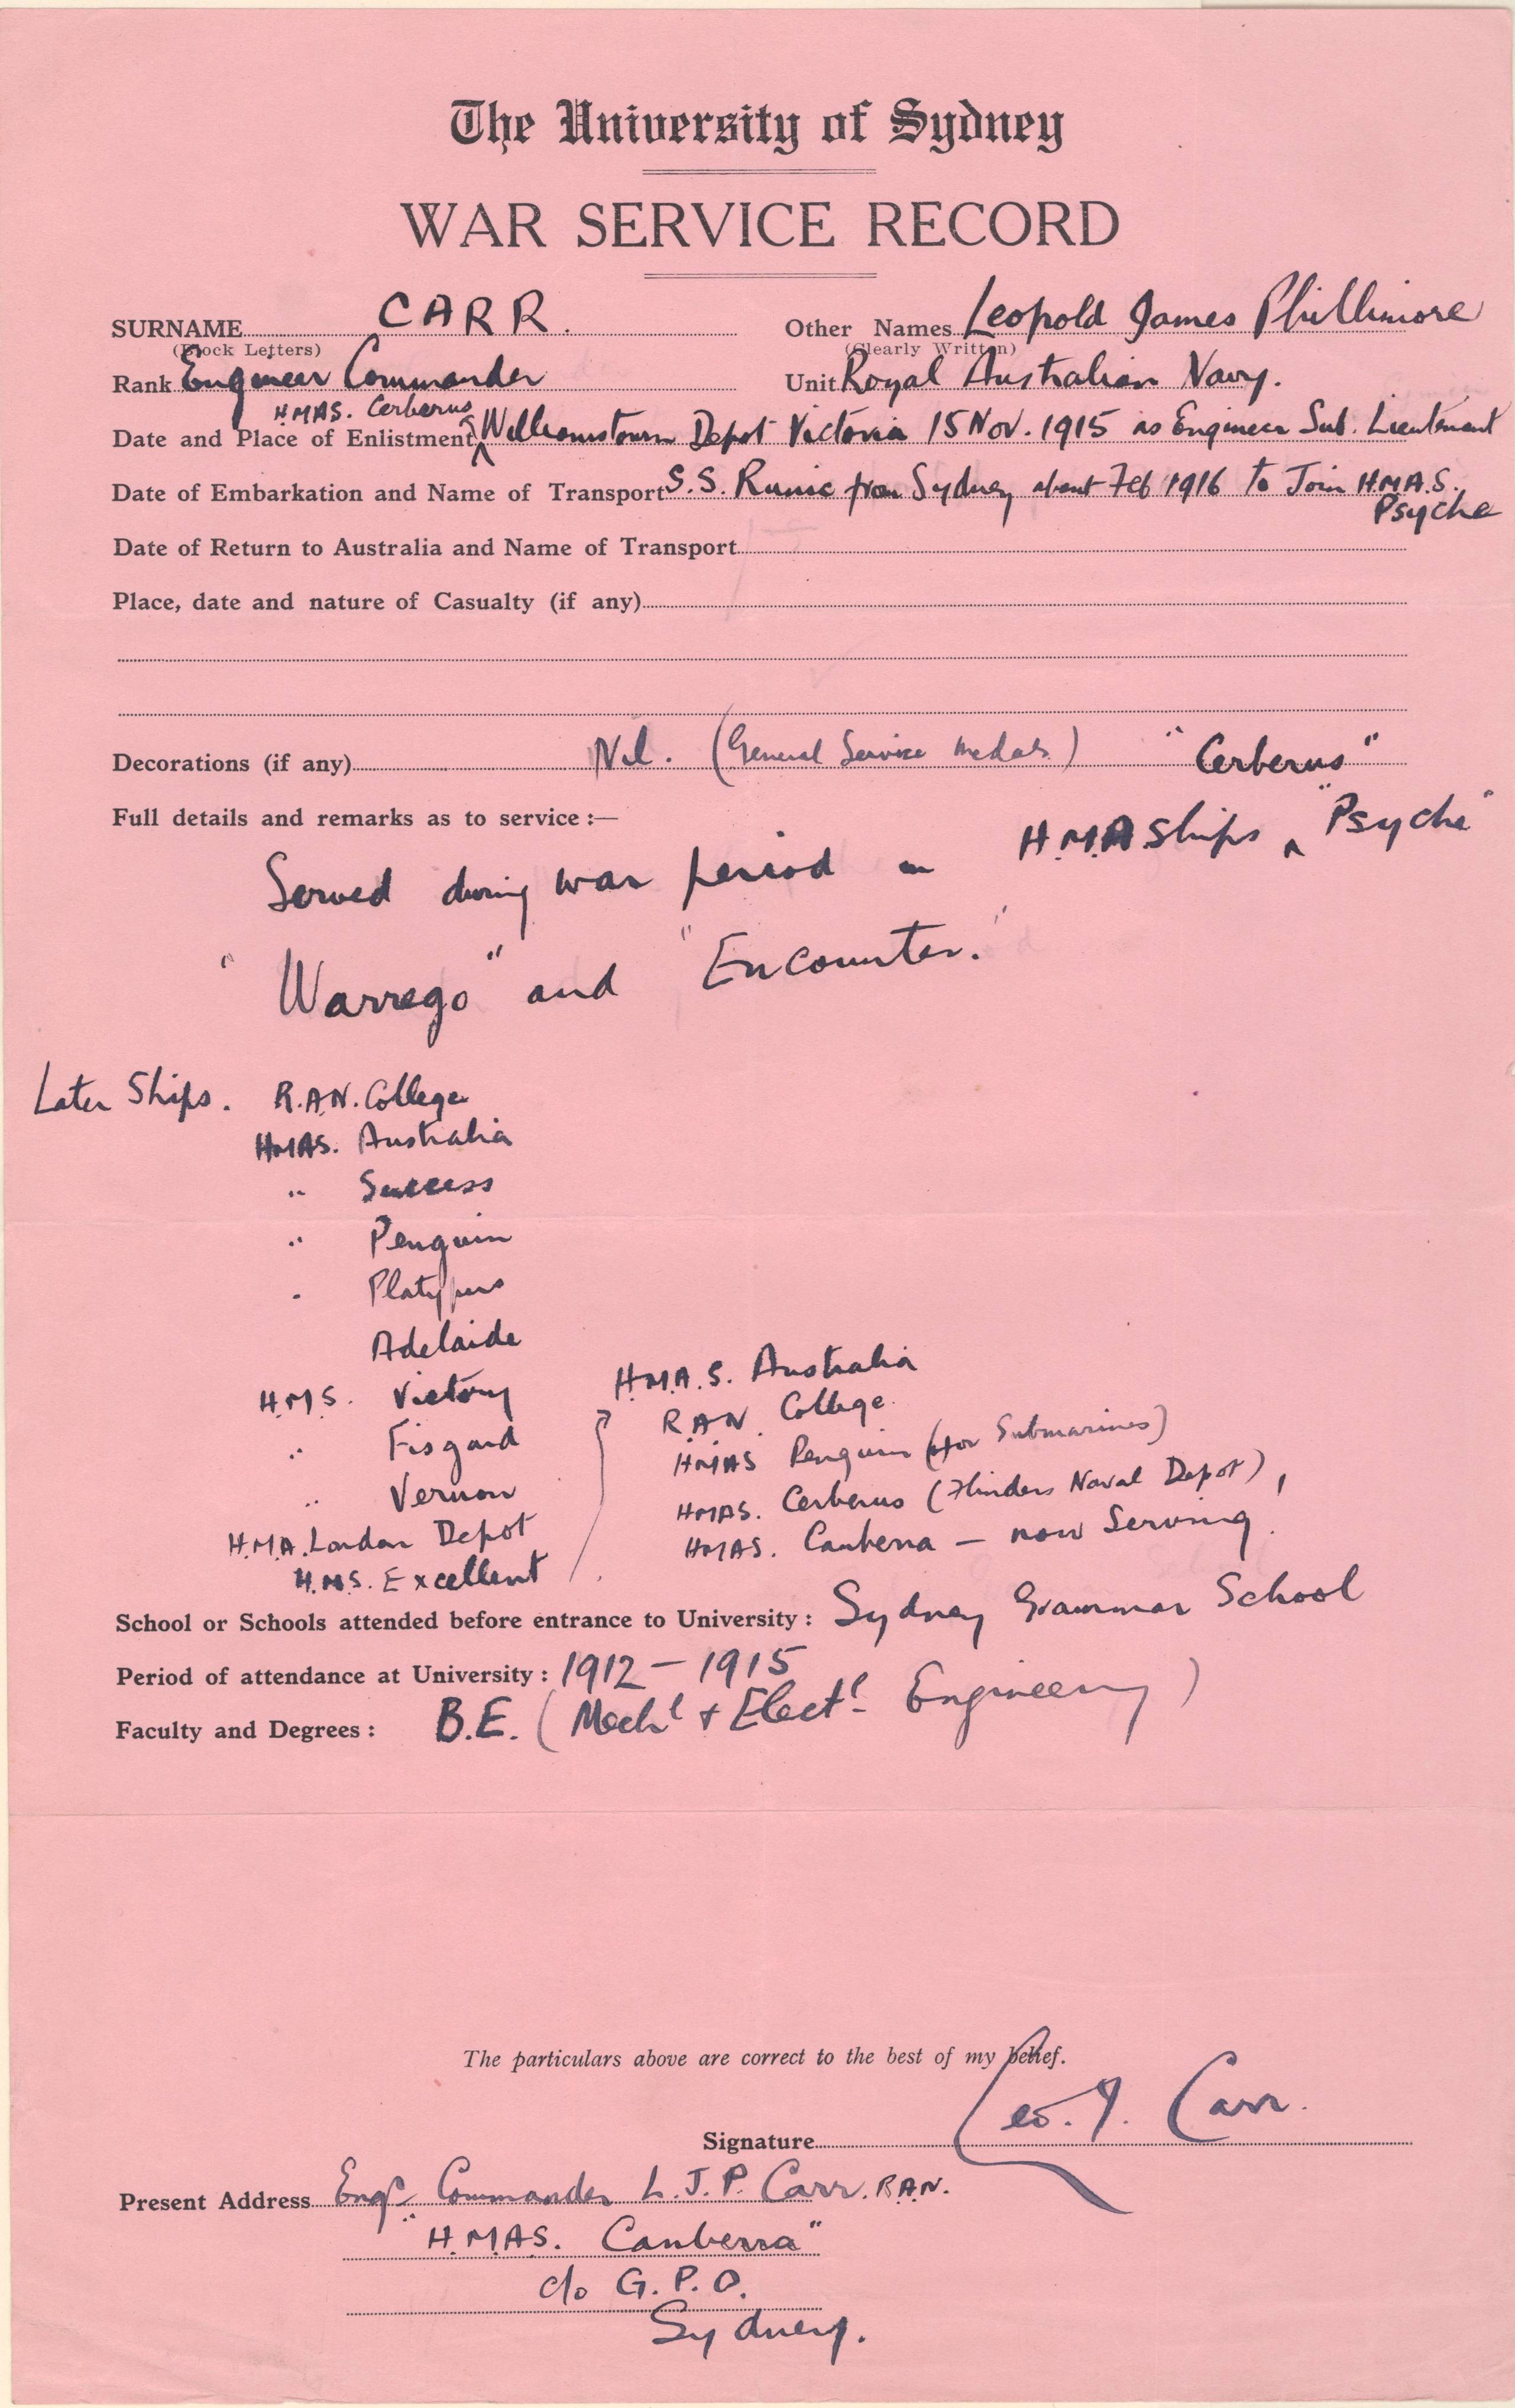 The University of Sydney
WAR SERVICE RECORD
SURNAME CARR. Other Names Leopold James Phillimore
(Block Letters) (Clearly Written)
Rank Engineer Commander Unit Royal Australian Navy.
HMAS. Cerberus
Date and Place of Enlistment Williamstown Depot Victoria 15 Nov. 1915 as Engineer Sub. Lieutenant
Date of Embarkation and Name of Transport S.S. Runic from Sydney about Feb 1916 to Join H.M.A.S.
Psyche
Date of Return to Australia and Name of Transport
Place, date and nature of Casualty (if any)
Decorations (if any) Nil. (General Service medals) "Cerberus"
Full details and remarks as to service :—
Served during war period in H.M.A Ships ^ "Psyche"
"Warrego" and "Encounter."
Later Ships. R.A.N. College
HMAS. Australia
" Success
" Penguin
" Platypus
Adelaide
H.M.S. Victory
" Fisgard
" Vernon
H.M.A. London Depot
H.M.S. Excellent
H.M.A.S. Australia
R.A.N. College
HMAS Penguin (for Submarines)
HMAS. Cerberus (Flinders Naval Depot),
HMAS. Canberra — now Serving.
School or Schools attended before entrance to University : Sydney Grammar School
Period of attendance at University : 1912 — 1915
Faculty and Degrees : B.E. (Mechl + Electl Engineering)
The particulars above are correct to the best of my belief.
Signature Leo. J. Carr.
Present Address Engr. Commander L.J.P. Carr. R.A.N.
"H.M.A.S. Canberra"
c/o G.P.O.
Sydney.